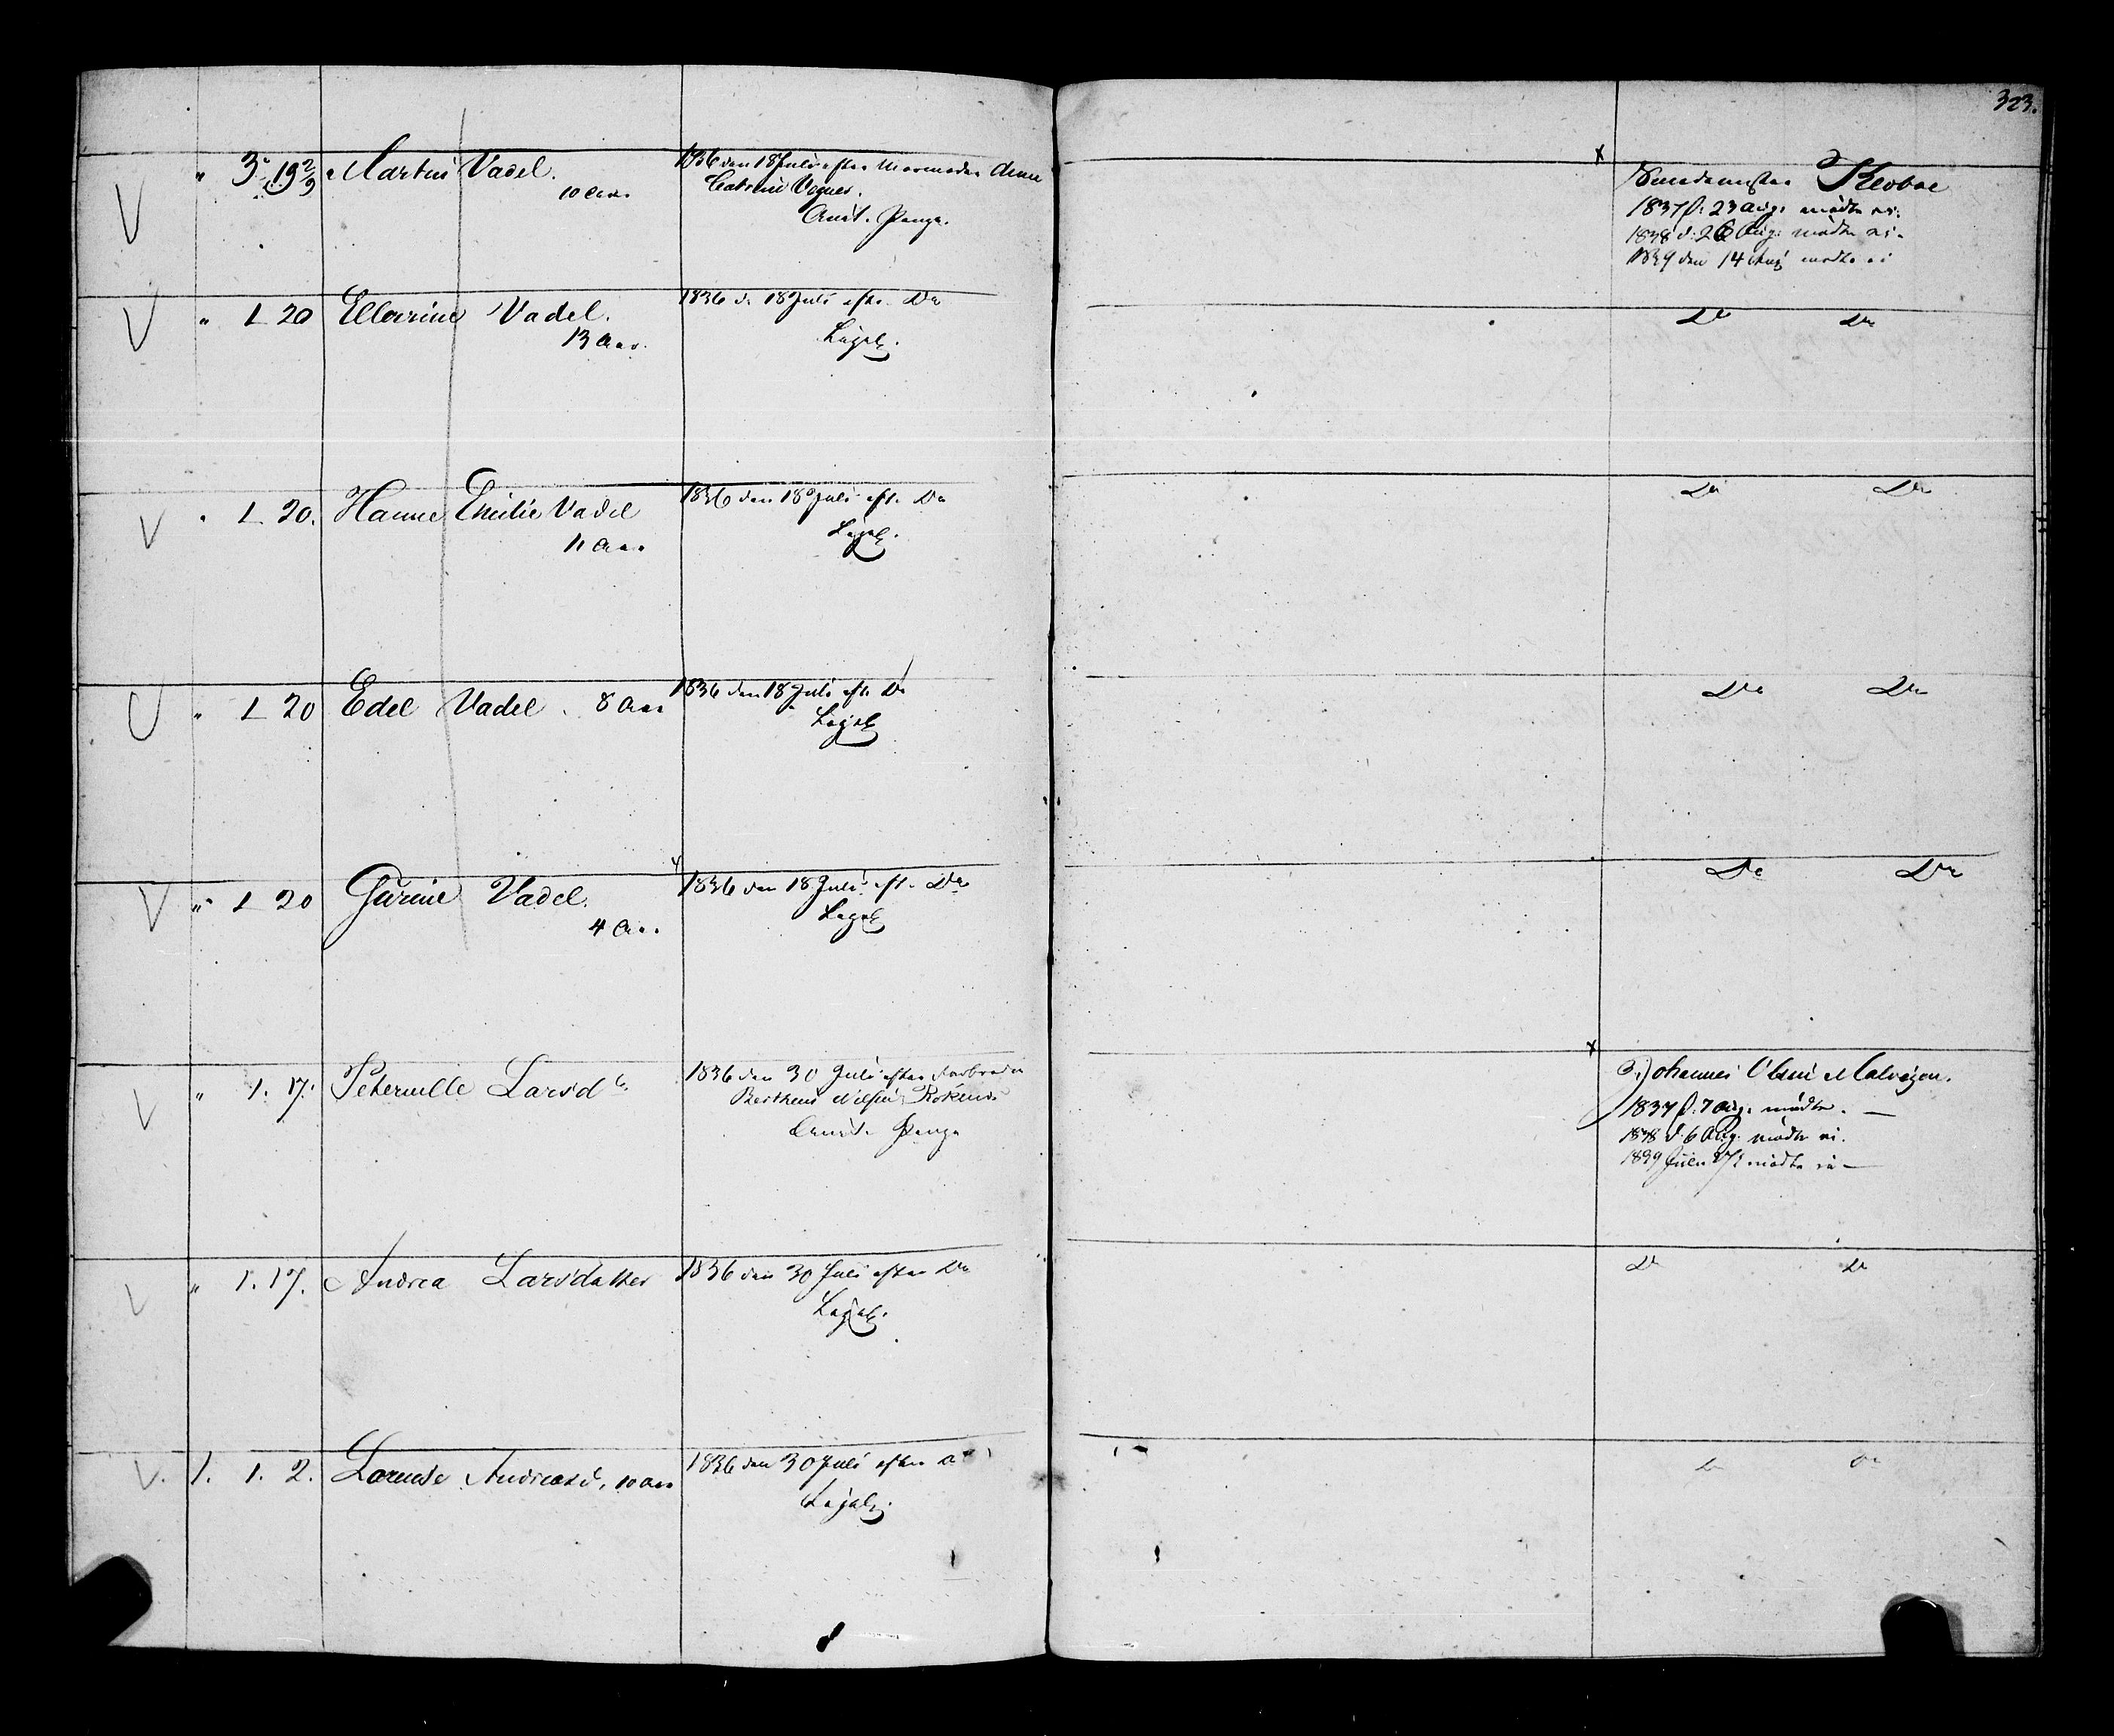 323.
" 3 19 2/9 Martin Vadel.
10 Aar.
1836 den 18 Juli efter Mormoder Anne
Catrine
Penge.
1837 d: 23 Aug: mødte ei.
1838 d: 26 Aug: mødte ei.
1839 den 14 Aug mødte ei
" 1 20 Ellevine Vadel.
13 Aar.
1836 d. 18 Juli eftr. Do
Ligel.
Do Do
" 1 20. Hanne Emilie Vadel
11 Aar.
1836 den 18 Juli eft. Do
Ligel.
Do Do
" 1 20 Edel Vadel. 8 Aar
1836 den 18 Juli eft. Do
Ligel
Do Do
" 1 20 Gurine Vadel.
4 Aar.
1836 den 18 Juli eft. Do
Ligel
Do Do
" 1. 17. Peternille Larsdr.
1836 den 30 Juli efter Farbroder
Bertheus Nilsen
Penge
Johannes Olsen
1837 d: 7 Aug. mødte. —
1838 d: 6 Aug. mødte ei.
1839 mødte ei —
" 1. 17. Andrea Larsdatter
1836 den 30 Juli efter Do
Ligel.
Do Do
1. 1. 2. Lorense Andreasd. 10 Aar
1836 den 30 Juli efter Do
Ligel.
Do Do